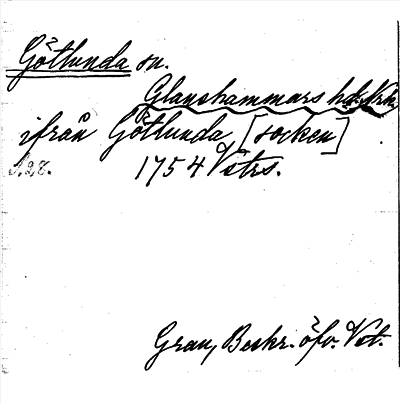 Götlunda sn.
Glanshammars hd. Nrk
ifrån Götlunda [socken]
S. 28. 1754 Vstrs.
Grau, Beskr. öfv. Vst.